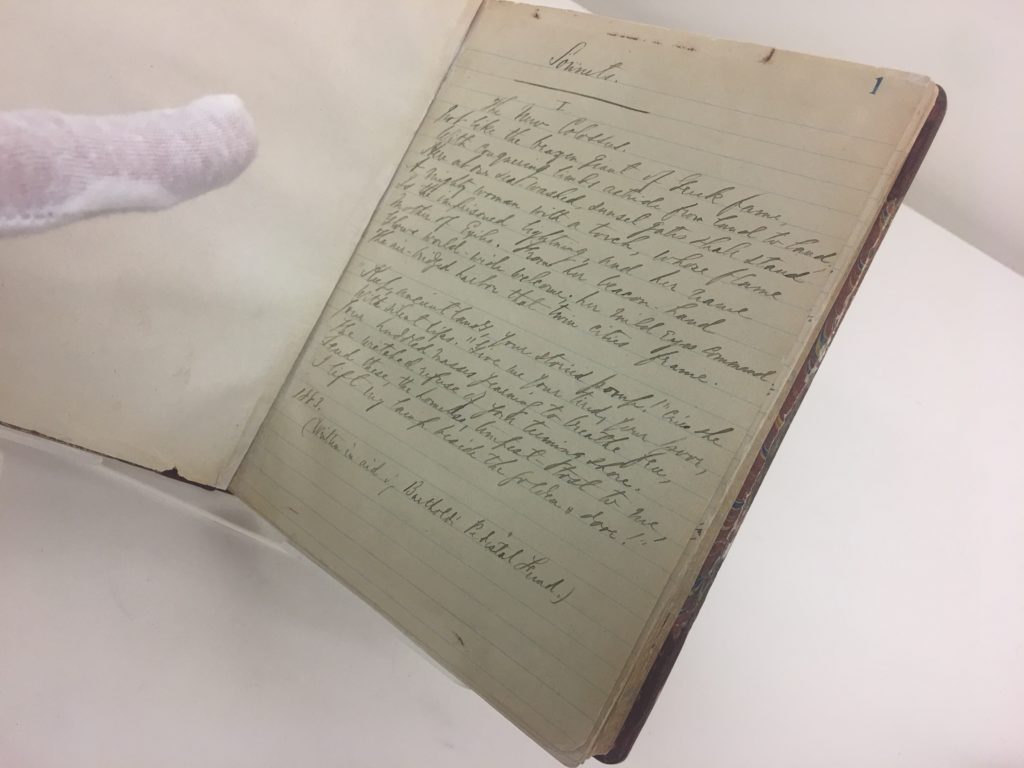 1
Sonnets.
I
The New Colossus.
Not like the brazen giant of Greek fame,
With conquering limbs astride from land to land;
Here at our sea-washed sunset gates shall stand
A mighty woman with a torch, whose flame
Is the imprisoned lightning, and her name
Mother of Exiles. From her beacon-hand
Glows world-wide welcome; her mild eyes command
The air-bridged harbor that twin cities frame.
"Keep ancient lands, your storied pomp!" cries she
With silent lips. "Give me your tired, your poor,
Your huddled masses yearning to breathe free,
The wretched refuse of your teeming shore.
Send these, the homeless, tempest-tost to me,
I lift my lamp beside the golden door!"
1883.
(Written in aid of Bartholdi Pedestal Fund.)